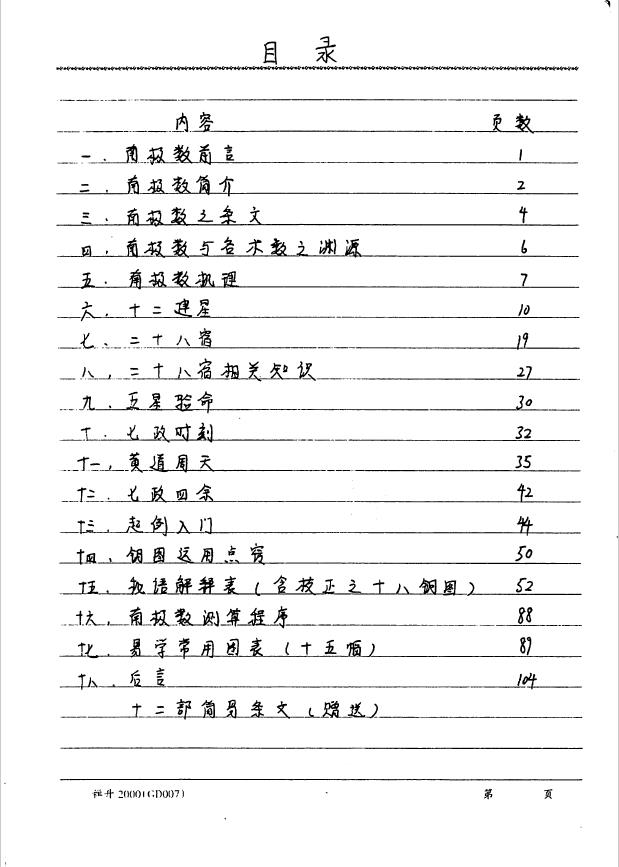 目 录
内容 页数
一. 南极数前言 1
二. 南极数简介 2
三. 南极数之条文 4
四. 南极数与各术数之渊源 6
五. 南极数机理 7
六. 十二建星 10
七、二十八宿 19
八, 二十八宿相关知识 27
九. 五星验命 30
十. 七政时刻 32
十一, 黄道周天 35
十二. 七政四余 42
十三. 起例入门 44
十四. 钥图运用点窍 50
十五. 秘语解释表(含校正之十八钥图) 52
十六, 南极数测算程序 88
十七. 易学常用图表(十五幅) 89
十八. 后言 104
十二部简易条文(赠送)
2000(GD007) 第 页